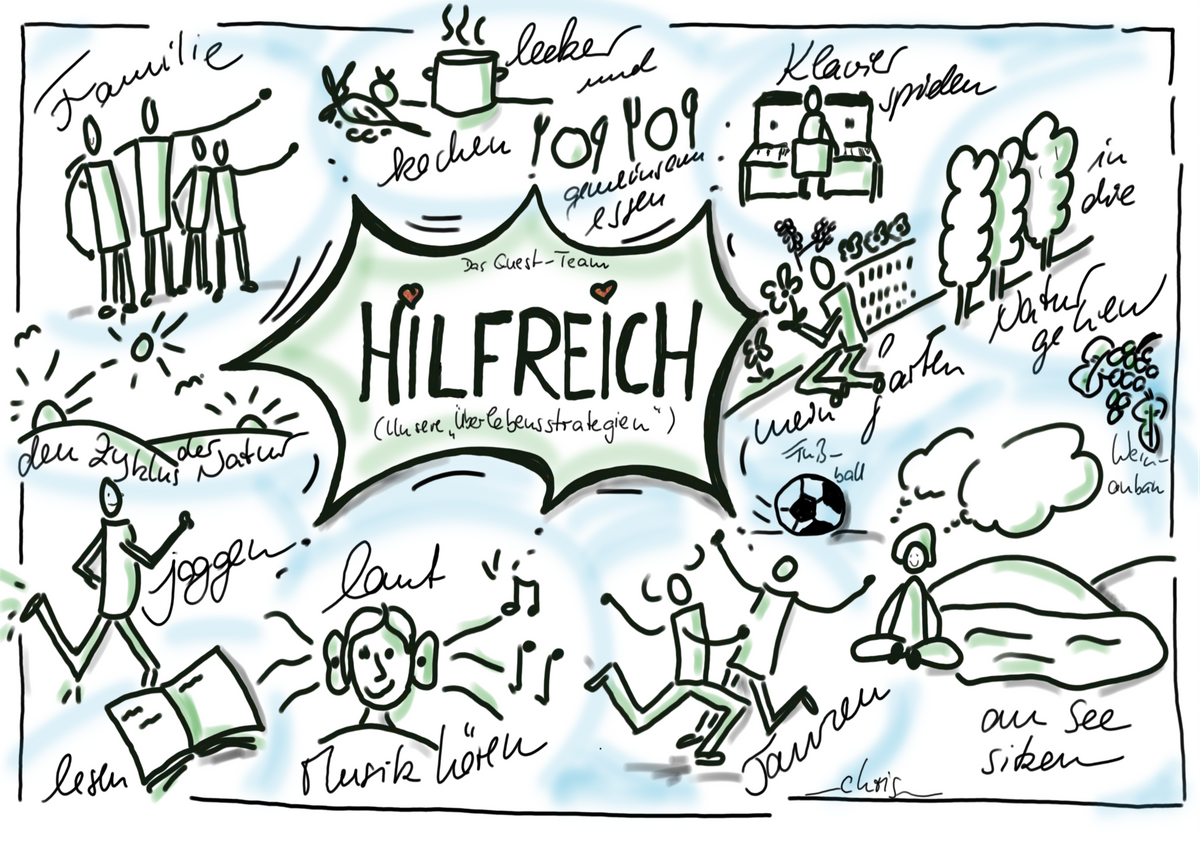 Familie
lecker
und
kochen
gemeinsam
essen
Klavier
spielen
in
die
Natur
gehen
Das Quest-Team
HiLFREiCH
(Unsere „Überlebensstrategien“)
mein Garten
Wein-
anbau
den Zyklus der Natur
Fuß-
ball
joggen
laut
Musik hören
lesen
Tanzen
am See
sitzen
chris